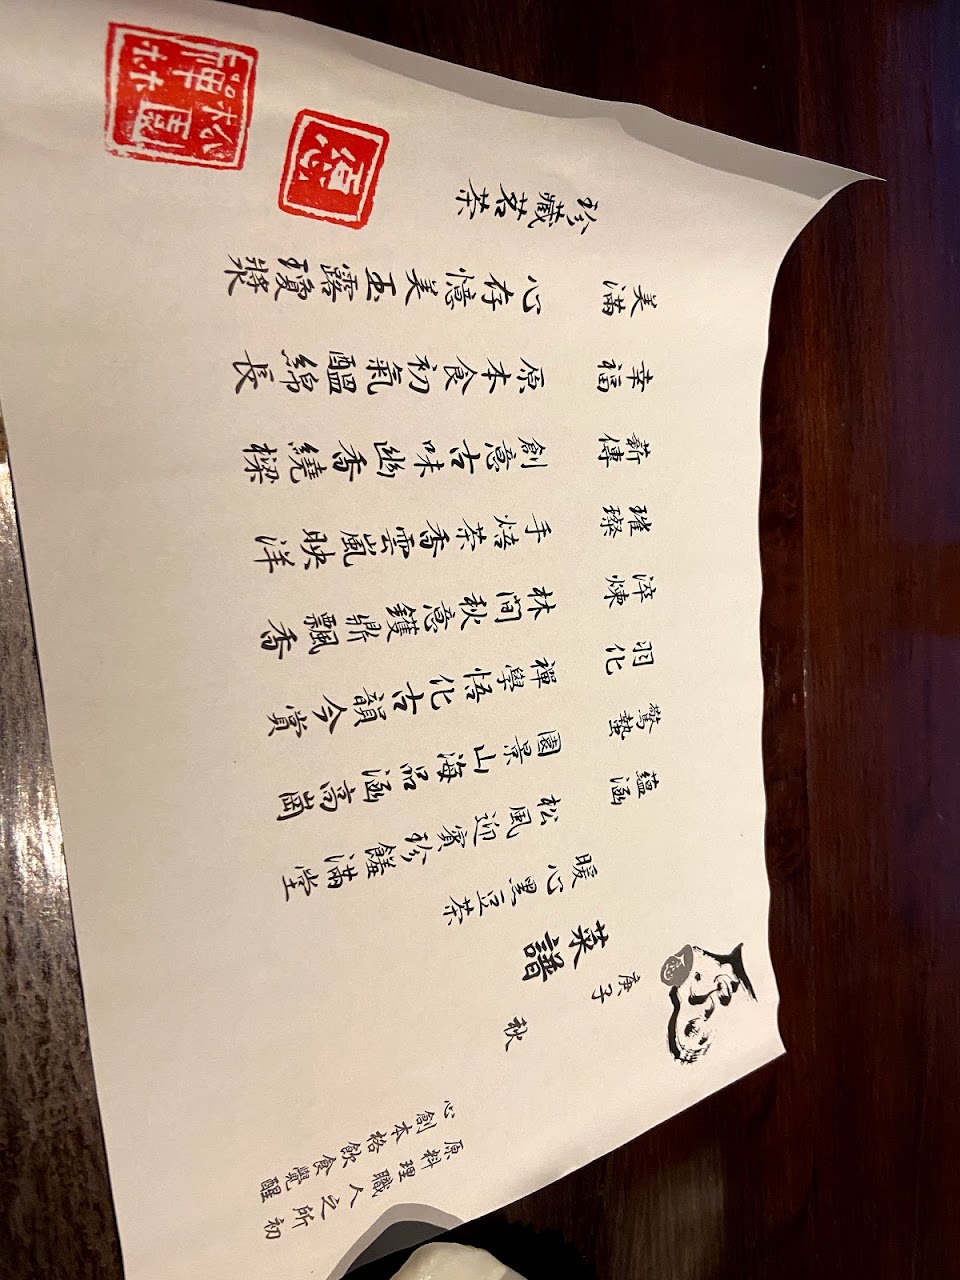 原料理職人之所初
心創本格飲食覺醒
庚子 秋
菜譜
暖心黑豆茶
蘊涵 松風迎賓珍饈滿堂
驚蟄 園景山海品涵高崗
羽化 禪學悟化古韻今賞
淬煉 林間秋意鑊鼎飄香
璀璨 手焙茶香雲嵐映洋
薪傳 創意古味幽香繞樑
幸福 原本食初氣醞綿長
美滿 心存憶美玉露瓊漿
珍藏茗茶
愿
松園禪林